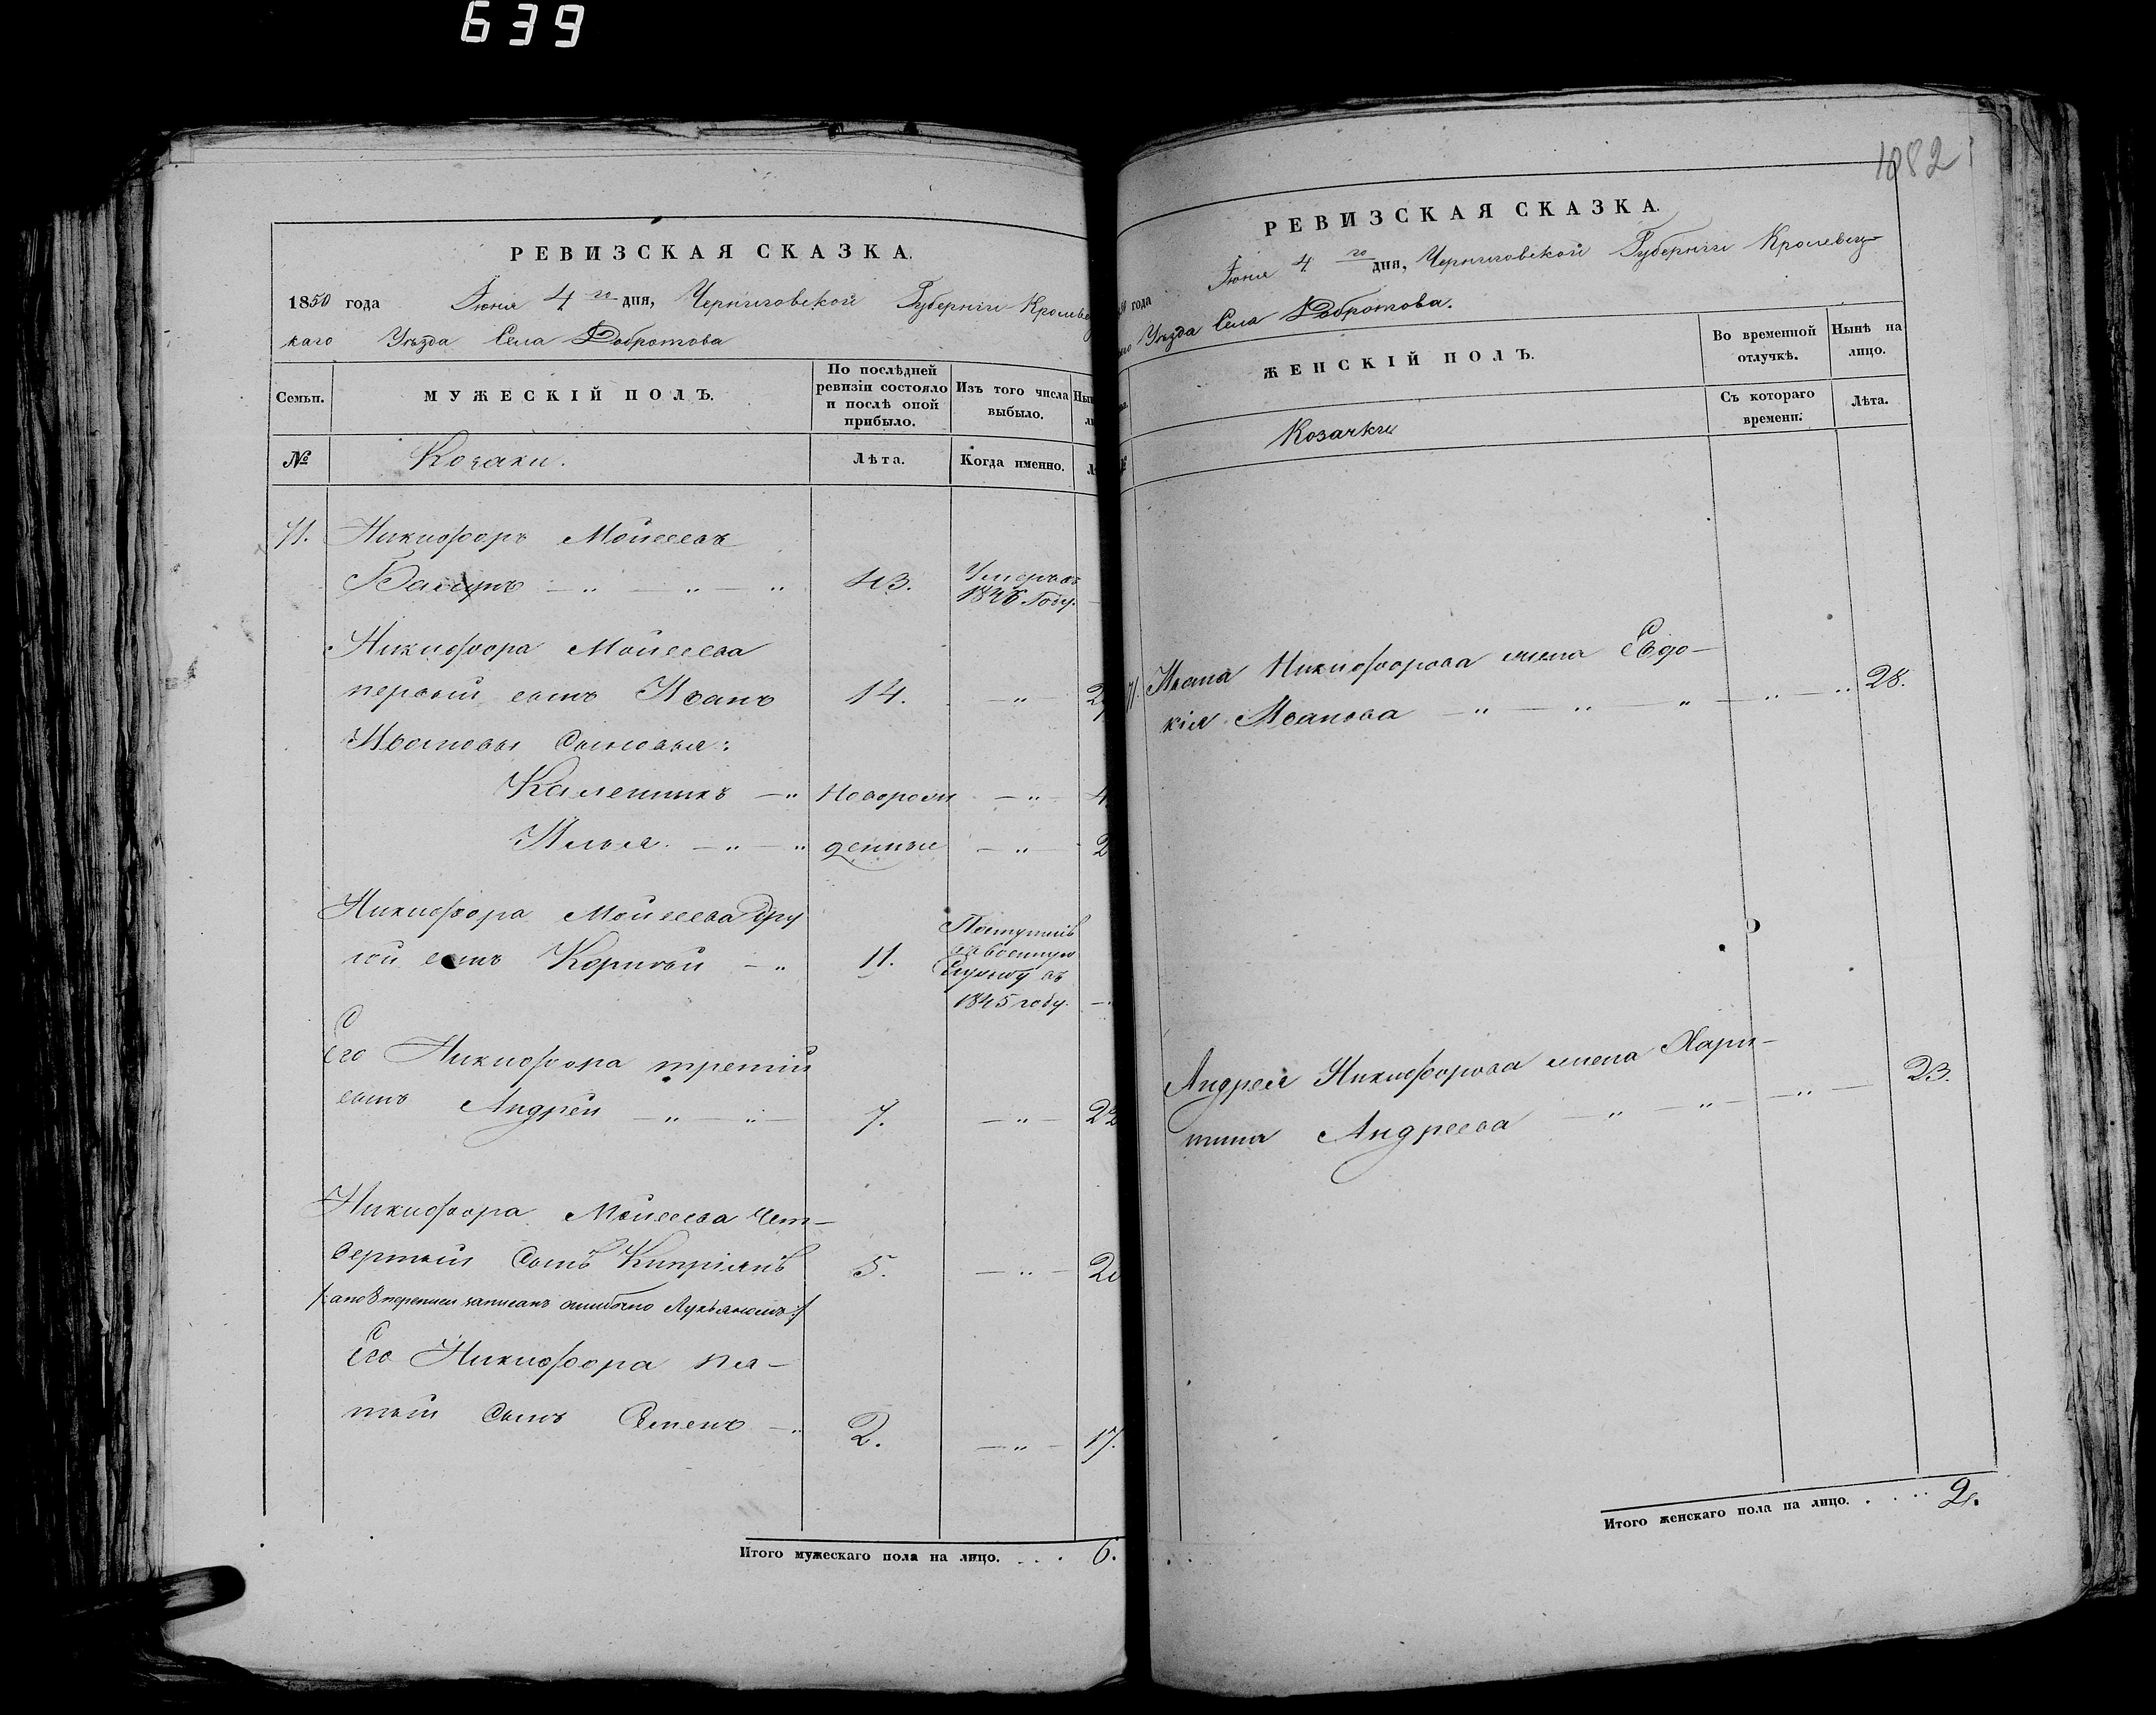 639
РЕВИЗСКАЯ СКАЗКА.
1850 года Іюня 4 го дня, Черниговской Губерніи Кролевец
каго Уѣзда Села Добротова
Семьи. МУЖЕСКІЙ ПОЛЪ. По послѣдней ревизіи состояло и послѣ оной прибыло. Изъ того числа выбыло.
№ Козаки. Лѣта. Когда именно.
71. Никифоръ Мойсеевъ
43. Умеръ въ
1846 Году.
Никифора Мойсеева
первый сынъ Иванъ 14. — „
Ивановы сыновья:
Каленикъ — „ Новорож — „ — 4
Илья. — „ — „ денные — „ — 2
Никифора Мойсеева дру
гой сынъ Корнѣй — „ 11. Поступилъ
въ военную
службу въ
1845 году.
Его Никифора третій
сынъ Андрей — „ — „ — 7. — „ — 22
Никифора Мойсеева чет-
вертый сынъ Кипріянъ 5. — „ — 20
/:а по 8 переписи записанъ ошибочно Лукьяномъ:/
Его Никифора пя-
тый сынъ Семенъ — „ 2. — „ — 17.
Итого мужескаго пола на лицо. . . . 6.
1082
РЕВИЗСКАЯ СКАЗКА.
года Іюня 4 го дня, Черниговской Губерніи Кролевец-
Уѣзда Села Добротова.
ЖЕНСКІЙ ПОЛЪ. Во временной отлучкѣ. Нынѣ на лицо.
Козачки Съ котораго времени. Лѣта.
71. Ивана Никифорова жена Евдо-
кія Иванова — „ — „ — „ — „ — „ 28.
Андрея Никифорова жена Хари-
тина Андреева — „ — „ — „ — 23.
Итого женскаго пола на лицо. . . . 2.